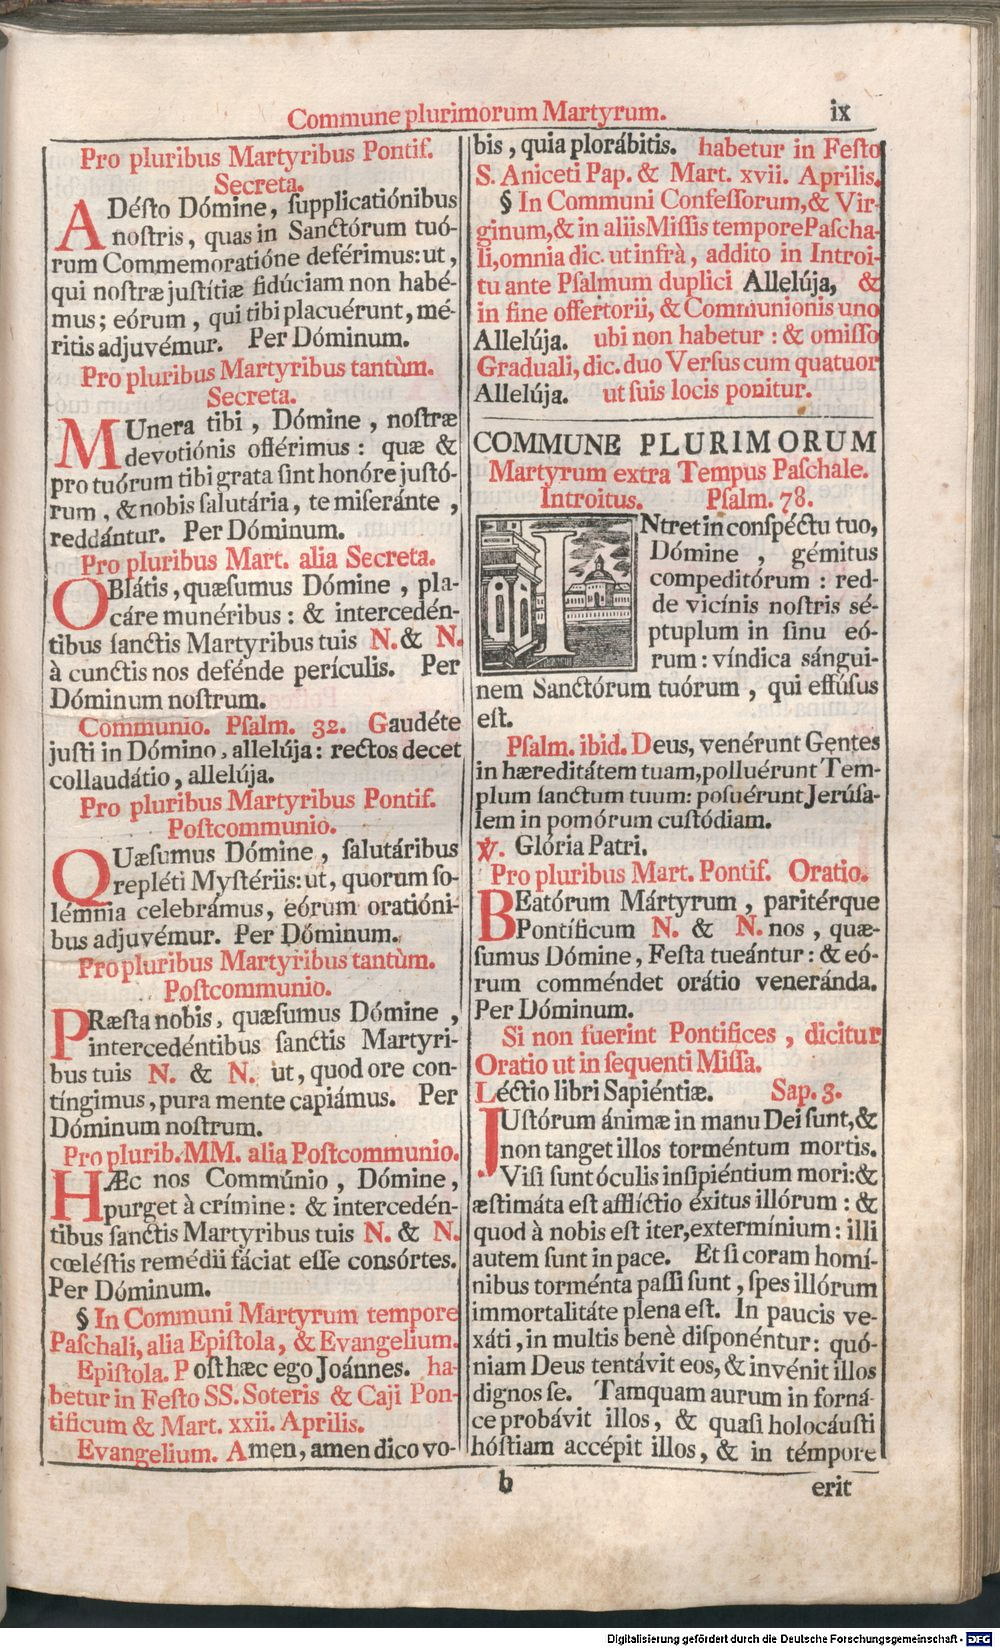 Commune plurimorum Martyrum. ix
Pro pluribus Martyribus Pontif.
Secreta.
ADésto Dómine, supplicatiónibus
nostris, quas in Sanctórum tuó-
rum Commemoratióne deférimus: ut,
qui nostræ justítiæ fidúciam non habé-
mus; eórum, qui tibi placuérunt, mé-
ritis adjuvémur. Per Dóminum.
Pro pluribus Martyribus tantùm.
Secreta.
MUnera tibi, Dómine, nostræ
devotiónis offérimus: quæ &
pro tuórum tibi grata sint honóre justó-
rum, & nobis salutária, te miseránte,
reddántur. Per Dóminum.
Pro pluribus Mart. alia Secreta.
OBlátis, quæsumus Dómine, pla-
cáre munéribus: & intercedén-
tibus sanctis Martyribus tuis N. & N.
à cunctis nos defénde perículis. Per
Dóminum nostrum.
Communio. Psalm. 32. Gaudéte
justi in Dómino, allelúja: rectos decet
collaudátio, allelúja.
Pro pluribus Martyribus Pontif.
Postcommunio.
QUæsumus Dómine, salutáribus
repléti Mystériis: ut, quorum so-
lémnia celebrámus, eórum oratióni-
bus adjuvémur. Per Dóminum.
Pro pluribus Martyribus tantùm.
Postcommunio.
PRæsta nobis, quæsumus Dómine,
intercedéntibus sanctis Martyri-
bus tuis N. & N. ut, quod ore con-
tíngimus, pura mente capiámus. Per
Dóminum nostrum.
Pro plurib. MM. alia Postcommunio.
HÆc nos Commúnio, Dómine,
purget à crímine: & intercedén-
tibus sanctis Martyribus tuis N. & N.
cœléstis remédii fáciat esse consórtes.
Per Dóminum.
§ In Communi Martyrum tempore
Paschali, alia Epistola, & Evangelium.
Epistola. Post hæc ego Joánnes. ha-
betur in Festo SS. Soteris & Caji Pon-
tificum & Mart. xxii. Aprilis.
Evangelium. Amen, amen dico vo-
bis, quia plorábitis. habetur in Festo
S. Aniceti Pap. & Mart. xvii. Aprilis.
§ In Communi Confessorum, & Vir-
ginum, & in aliis Missis tempore Pascha-
li, omnia dic. ut infrà, addito in Introi-
tu ante Psalmum duplici Allelúja, &
in fine offertorii, & Communionis uno
Allelúja. ubi non habetur: & omisso
Graduali, dic. duo Versus cum quatuor
Allelúja. ut suis locis ponitur.
COMMUNE PLURIMORUM
Martyrum extra Tempus Paschale.
Introitus. Psalm. 78.
INtret in conspéctu tuo,
Dómine, gémitus
compeditórum: red-
de vicínis nostris sé-
ptuplum in sinu eó-
rum: víndica sángui-
nem Sanctórum tuórum, qui effúsus
est.
Psalm. ibid. Deus, venérunt Gentes
in hæreditátem tuam, polluérunt Tem-
plum sanctum tuum: posuérunt Jerúsa-
lem in pomórum custódiam.
℣. Glória Patri.
Pro pluribus Mart. Pontif. Oratio.
BEatórum Mártyrum, paritérque
Pontíficum N. & N. nos, quæ-
sumus Dómine, Festa tueántur: & eó-
rum comméndet orátio veneránda.
Per Dóminum.
Si non fuerint Pontifices, dicitur
Oratio ut in sequenti Missa.
Léctio libri Sapiéntiæ. Sap. 3.
JUstórum ánimæ in manu Dei sunt, &
non tanget illos torméntum mortis.
Visi sunt óculis insipiéntium mori: &
æstimáta est afflíctio éxitus illórum: &
quod à nobis est iter, extermínium: illi
autem sunt in pace. Et si coram homí-
nibus torménta passi sunt, spes illórum
immortalitáte plena est. In paucis ve-
xáti, in multis benè disponéntur: quó-
niam Deus tentávit eos, & invénit illos
dignos se. Tamquam aurum in forná-
ce probávit illos, & quasi holocáusti
hóstiam accépit illos, & in témpore
b erit
Digitalisierung gefördert durch die Deutsche Forschungsgemeinschaft - DFG